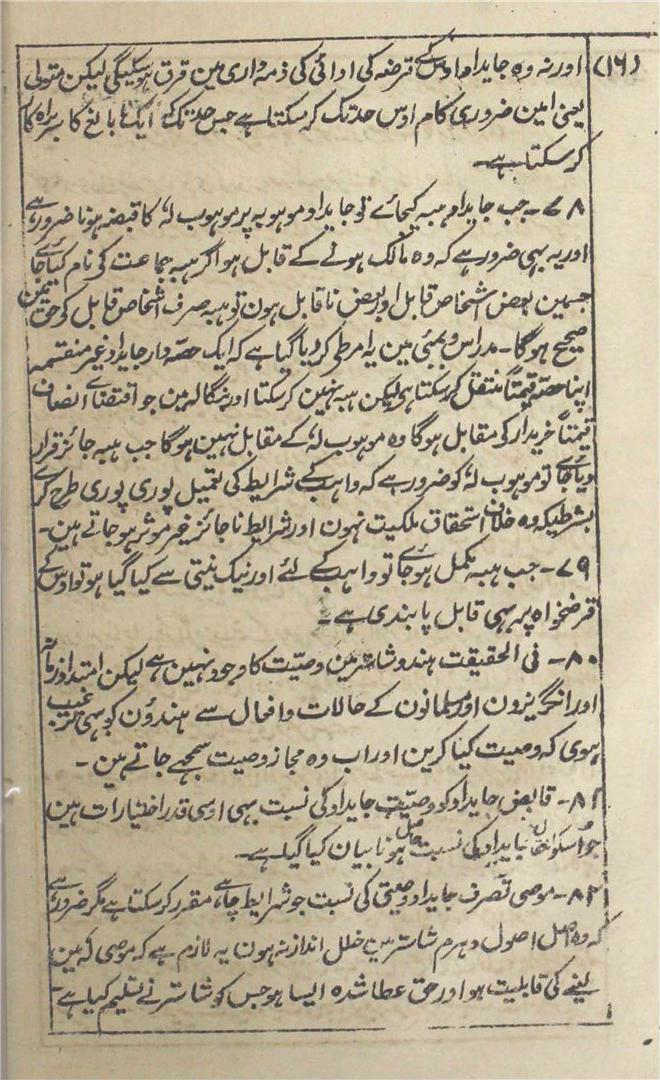 (۱۶) اور نہ وہ جایداد اوس کے قرضہ کی ادائی کی ذمہ داری مین قرق ہو سکیگی لیکن متولی
یعنی امین ضروری کام اوس حد تک کر سکتا ہے جس حد تک کہ ایک نابالغ کا سربراہ کار
کر سکتا ہے۔
۷۸۔ جب جایداد ہبہ کیجائے تو جایداد موہوبہ پر موہوب لہٗ کا قبضہ ہونا ضرور ہے
اور یہ بہی ضرور ہے کہ وہ مالک ہونے کے قابل ہو اگر ہبہ جماعت کی نام کیا جائے
جسمین بعض اشخاص قابل اور بعض ناقابل ہون تو ہبہ صرف اشخاص قابل کو حق مین
صحیح ہوگا۔ مدراس و بمبئی مین یہ امر طی کر دیا گیا ہے کہ ایک حصّہ دار جایداد غیر منقسمہ
اپنا حصہ قیمتاً منتقل کر سکتا ہی لیکن ہبہ نہین کر سکتا اور بنگالہ مین جو اقتضاے انصاف
قیمتاً خریدار کی مقابل ہوگا وہ موہوب لہٗ کے مقابل نہین ہوگا جب ہبہ جائز قرار
دیا جائے تو موہوب لہٗ کو ضرور ہے کہ واہب کے شرایط کی تعمیل پوری پوری طرح کرے
بشرطیکہ وہ خلاف استحقاق ملکیت نہون اور شرایط ناجائز غیر موثر ہو جاتے ہین۔
۷۹۔ جب ہبہ مکمل ہو جائے تو واہب کے لئے اور نیک نیتی سے کیا گیا ہو تو اوس کے
قرضخواہ پر بہی قابل پابندی ہے۔
۸۰۔ فی الحقیقت ہندو شاستر مین وصیّت کا وجود نہین ہے لیکن امتداد زمانہ
اور انگریزون اور مسلمانون کے حالات و افعال سے ہندوُن کو بہی ترغیب
ہوی کہ وصیت کیا کرین اور اب وہ مجاز وصیت سمجہے جاتے ہین۔
۸۱۔ قابض جایداد کو وصیّت جایداد کی نسبت بہی اوسی قدر اختیارات ہین
جو اُسکو انتقال جایداد کی نسبت حاصل ہونا بیان کیا گیا ہے۔
۸۲۔ موصی تصرف جایداد وصیتی کی نسبت جو شرایط چاہے مقرر کر سکتا ہے مگر ضرور ہے
کہ وہ اصل اصول دہرم شاستر مین خلل انداز نہ ہون یہ لازم ہے کہ موصی لہ مین
لینے کی قابلیت ہو اور حق عطا شدہ ایسا ہو جس کو شاستر نے تسلیم کیا ہے۔